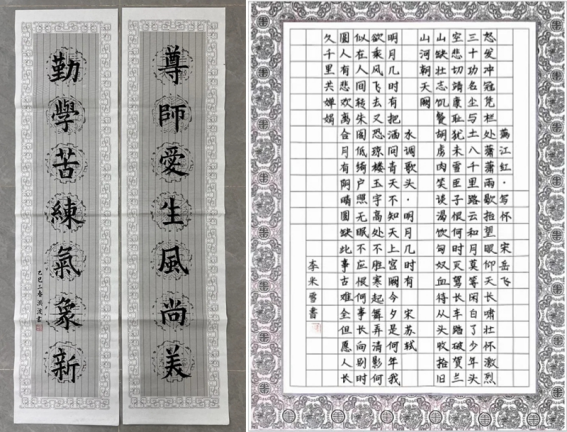 尊師愛生風尚美
勤學苦練氣象新
乙巳三春
满江红·写怀 宋岳飞
怒发冲冠凭栏处潇潇雨歇抬望眼仰天长啸壮怀激烈
三十功名尘与土八千里路云和月莫等闲白了少年头
空悲切靖康耻犹未雪臣子恨何时灭驾长车踏破贺兰
山缺壮志饥餐胡虏肉笑谈渴饮匈奴血待从头收拾旧
山河朝天阙
水调歌头·明月几时有 宋苏轼
明月几时有把酒问青天不知天上宫阙今夕是何年我
欲乘风飞去又恐琼楼玉宇高处不胜寒起舞弄清影何
似在人间转朱阁低绮户照无眠不应恨何事长向别时
圆人有悲欢离合月有阴晴圆缺此事古难全但愿人长
久千里共婵娟
李 書